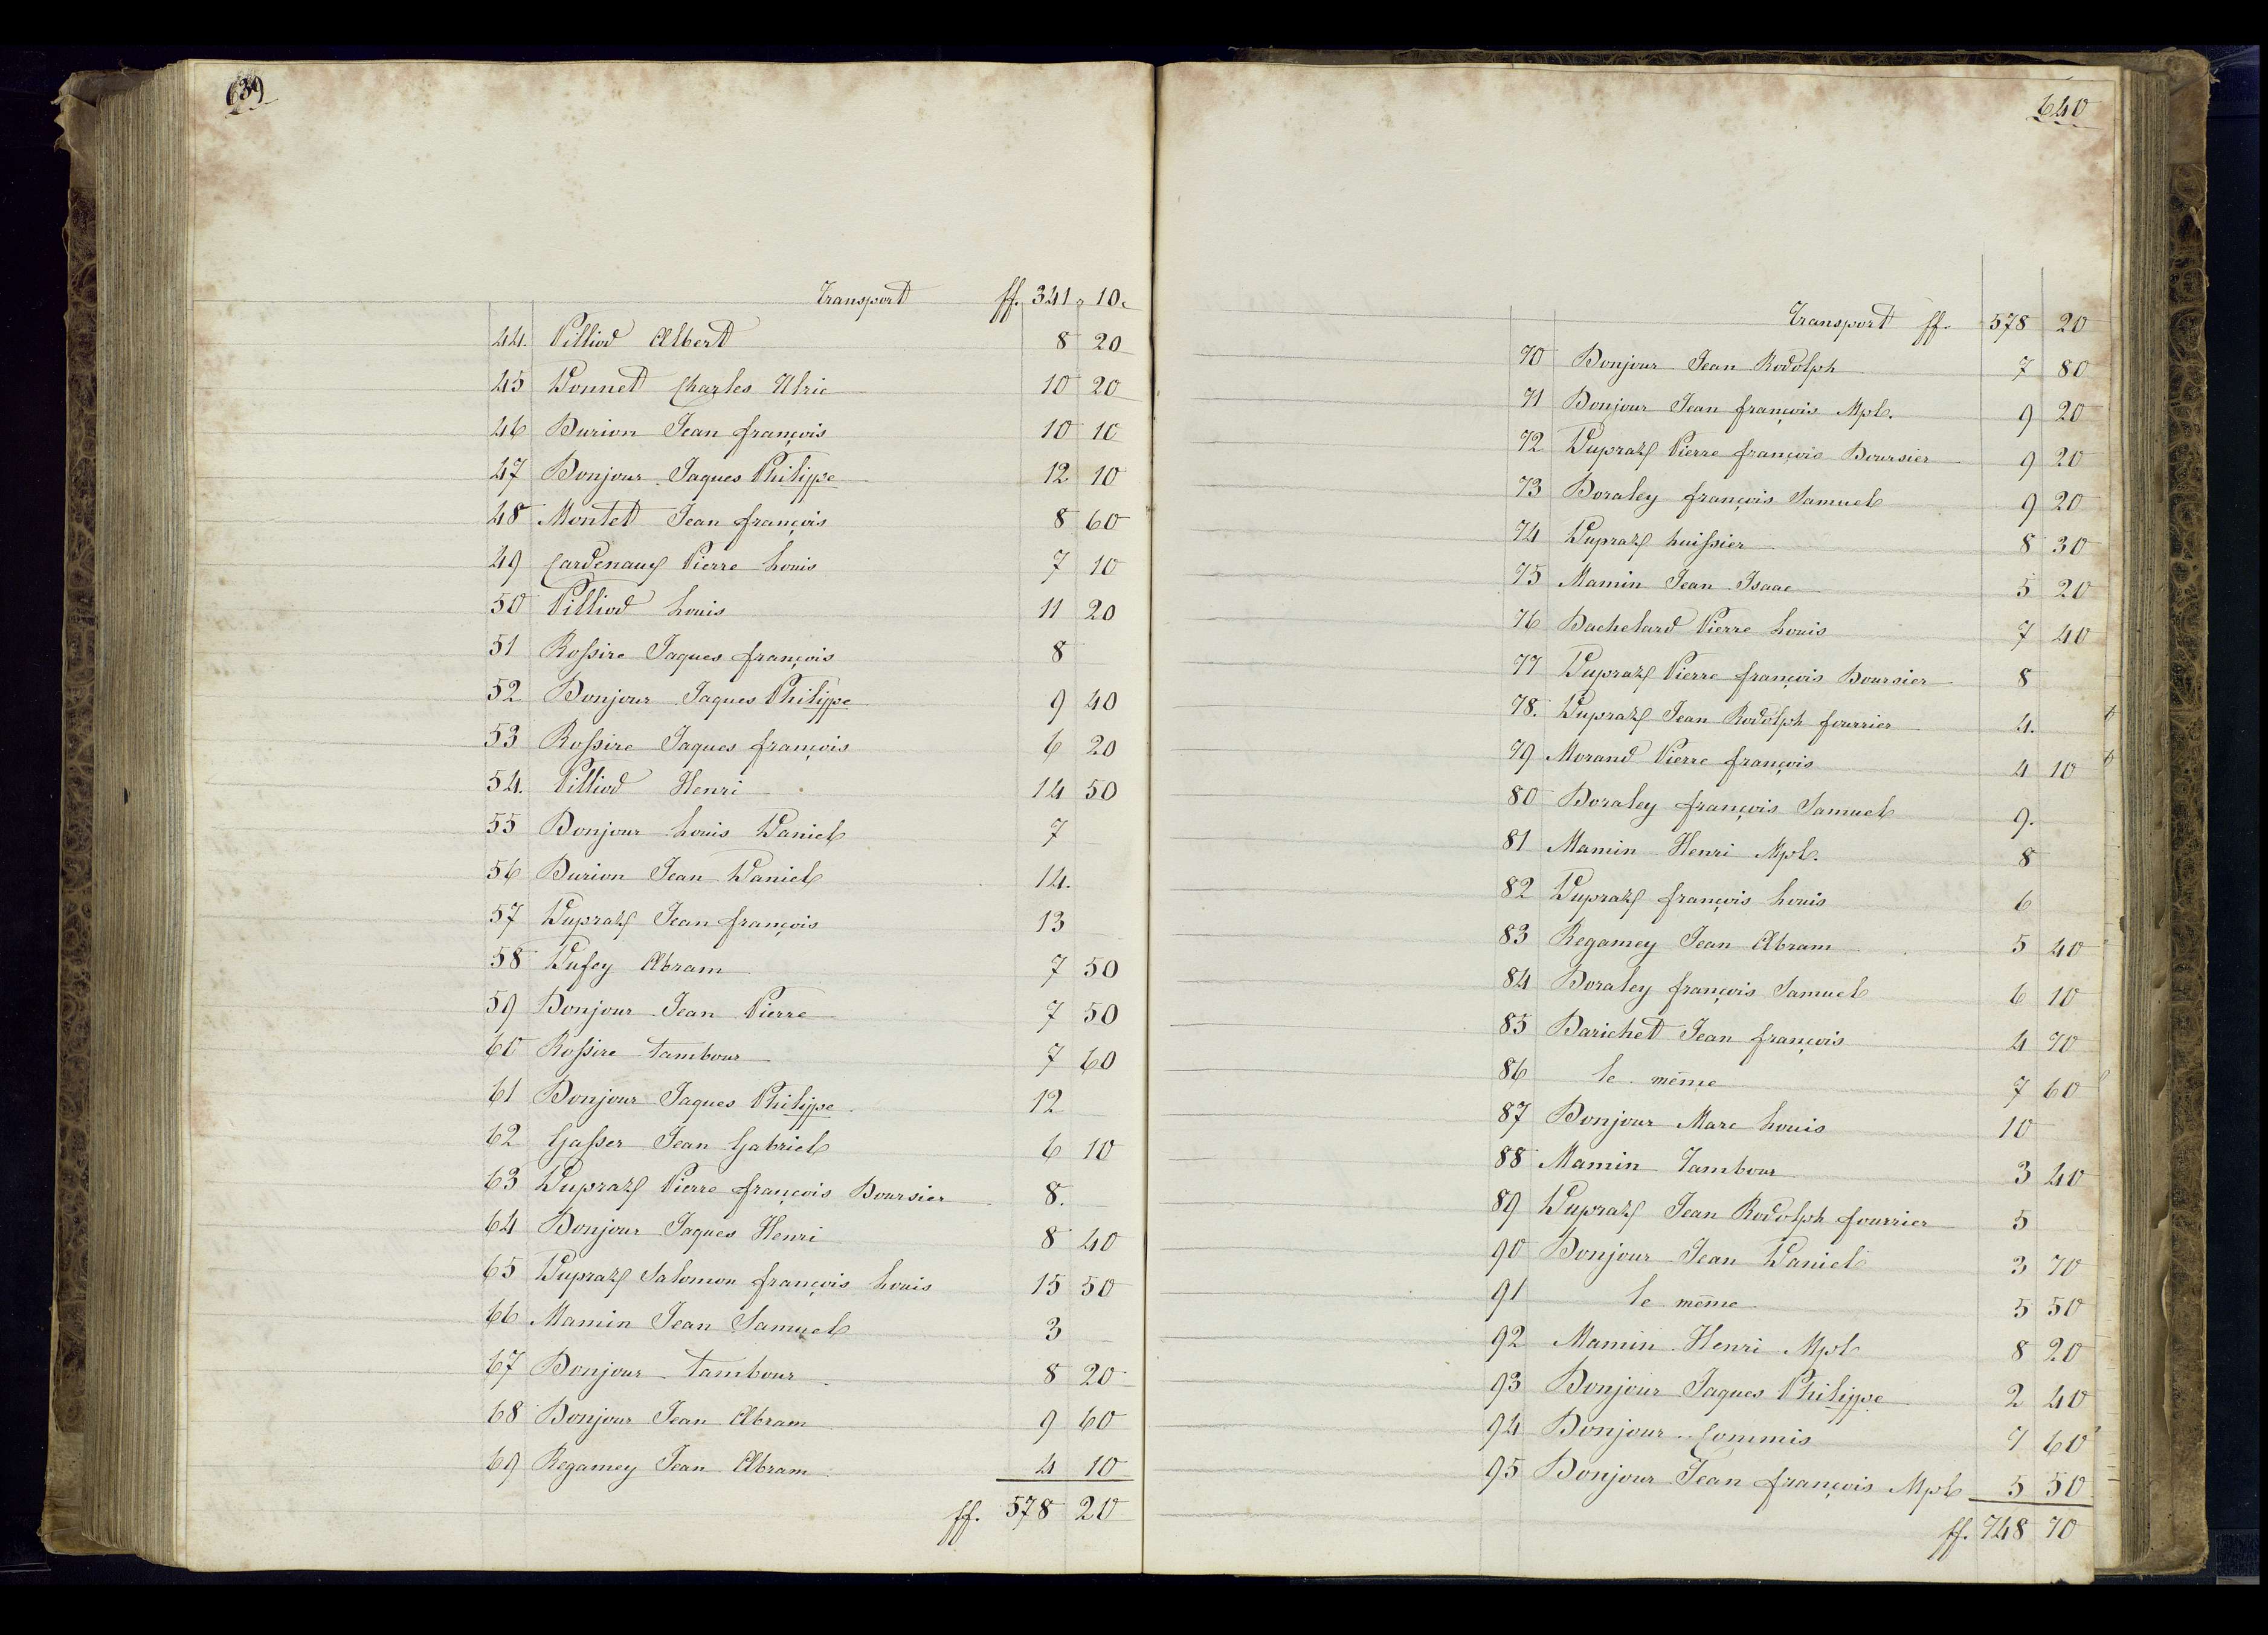 639
Transport ff. 341 " 10 "
44. Villiod Albert 8 20
45 Vonnet Charles Ulric 10 20
46 Burion Jean françois 10 10
47 Bonjour Jaques Philippe 12 10
48 Montet Jean françois 8 60
49 Cardenaux Pierre Louis 7 10
50 Villiod Louis 11 20
51 Rossire Jaques françois 8
52 Bonjour Jaques Philippe 9 40
53 Rossire Jaques françois 6 20
54. Villiod Henri 14 50
55 Bonjour Louis Daniel 7
56 Burion Jean Daniel 14.
57 Dupraz Jean françois 13
58 Dufey Abram 7 50
59 Bonjour Jean Pierre 7 50
60 Rossire tambour 7 60
61 Bonjour Jaques Philippe 12
62 Gasser Jean Gabriel 6 10
63 Dupraz Pierre françois Boursier 8.
64 Bonjour Jaques Henri 8 40
65 Dupraz Salomon françois Louis 15 50
66 Mamin Jean Samuel 3
67 Bonjour tambour 8 20
68 Bonjour Jean Abram 9 60
69 Regamey Jean Abram 4 10
ff. 578 20
640
Transport ff. 578 20
70 Bonjour Jean Rodolph 7 80
71 Bonjour Jean françois Mpl. 9 20
72 Dupraz Pierre françois Boursier 9 20
73 Boraley françois Samuel 9 20
74 Dupraz huissier 8 30
75 Mamin Jean Isaac 5 20
76 Bachelard Pierre Louis 7 40
77 Dupraz Pierre françois Boursier 8
78. Dupraz Jean Rodolph fourrier 4.
79 Morand Pierre françois 4 10
80 Boraley françois Samuel 9.
81 Mamin Henri Mpl. 8
82 Dupraz françois Louis 6
83 Regamey Jean Abram 5 40
84 Boraley françois Samuel 6 10
85 Barichet Jean françois 4 70
86 le même 7 60
87 Bonjour Marc Louis 10
88 Mamin Tambour 3 40
89 Dupraz Jean Rodolph fourrier 5
90 Bonjour Jean Daniel 3 70
91 le même 5 50
92 Mamin Henri Mpl 8 20
93 Bonjour Jaques Philippe 2 40
94 Bonjour Commis 7 60
95 Bonjour Jean françois Mpl 5 50
ff. 748 70